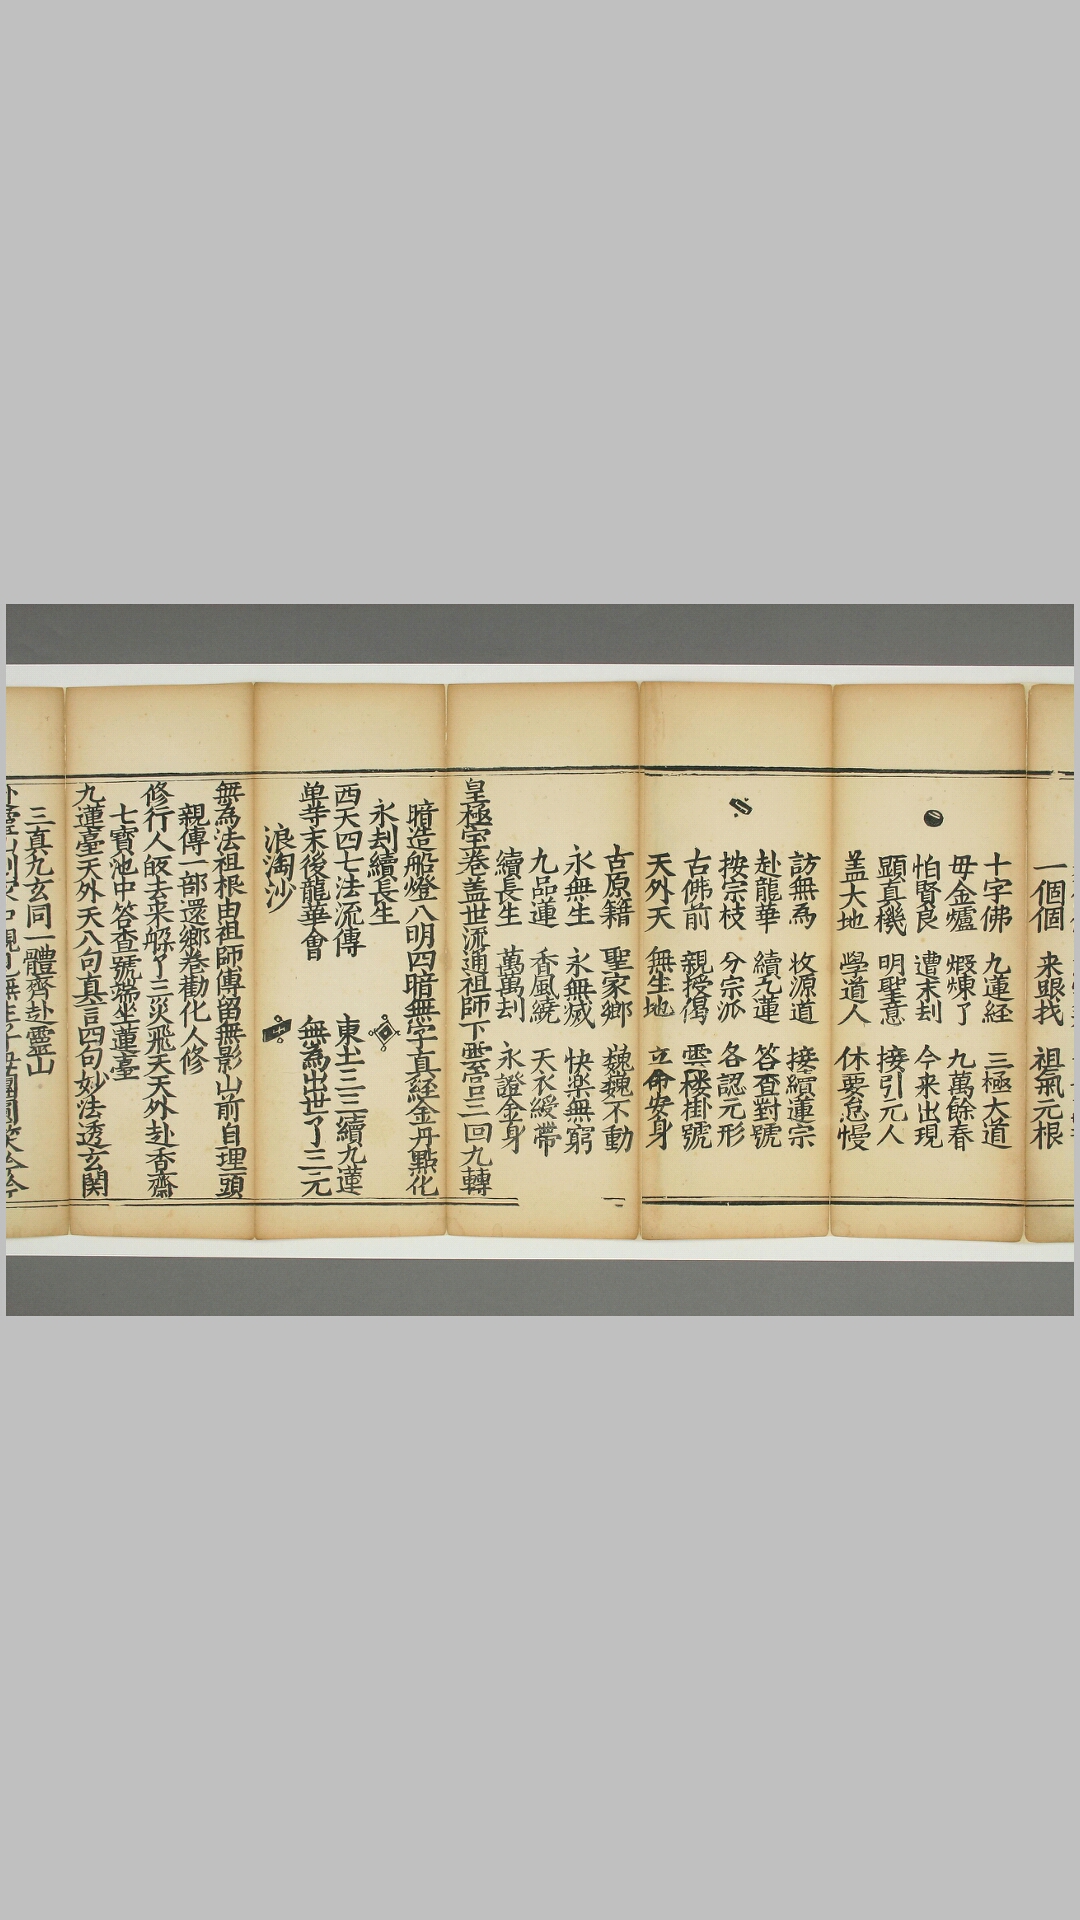 一個個 来跟找 祖氣元根
十字佛 九蓮経 三極大道
毋金爐 煆煉了 九萬餘春
怕賢良 遭末刦 今来出現
顕真機 明聖意 接引元人
盖大地 學道人 休要怠慢
訪無為 收源道 接續蓮宗
赴龍華 續九蓮 答查對號
按宗枝 分宗派 各認元形
古佛前 親授偈 雲楼掛號
天外天 無生地 立命安身
古原籍 聖家鄉 巍巍不動
永無生 永無滅 快楽無窮
九品蓮 香風繞 天衣綬帶
續長生 萬萬刦 永證金身
皇極宝卷盖世流通祖師下雲宫三回九轉
暗造船燈八明四暗無字真経金丹點化
永刦續長生
西天四七法流傳 東土三三續九蓮
单等末後龍華會 無為出世了三元
浪淘沙
無為法祖根由祖師傳留無影山前自理頭
親傳一部還鄉卷勸化人修
修行人皈去来觧了三災飛天天外赴香齋
七寳池中答查號端坐蓮臺
九蓮臺天外天八句真言四句妙法透玄関
三真九玄同一體齊赴靈山